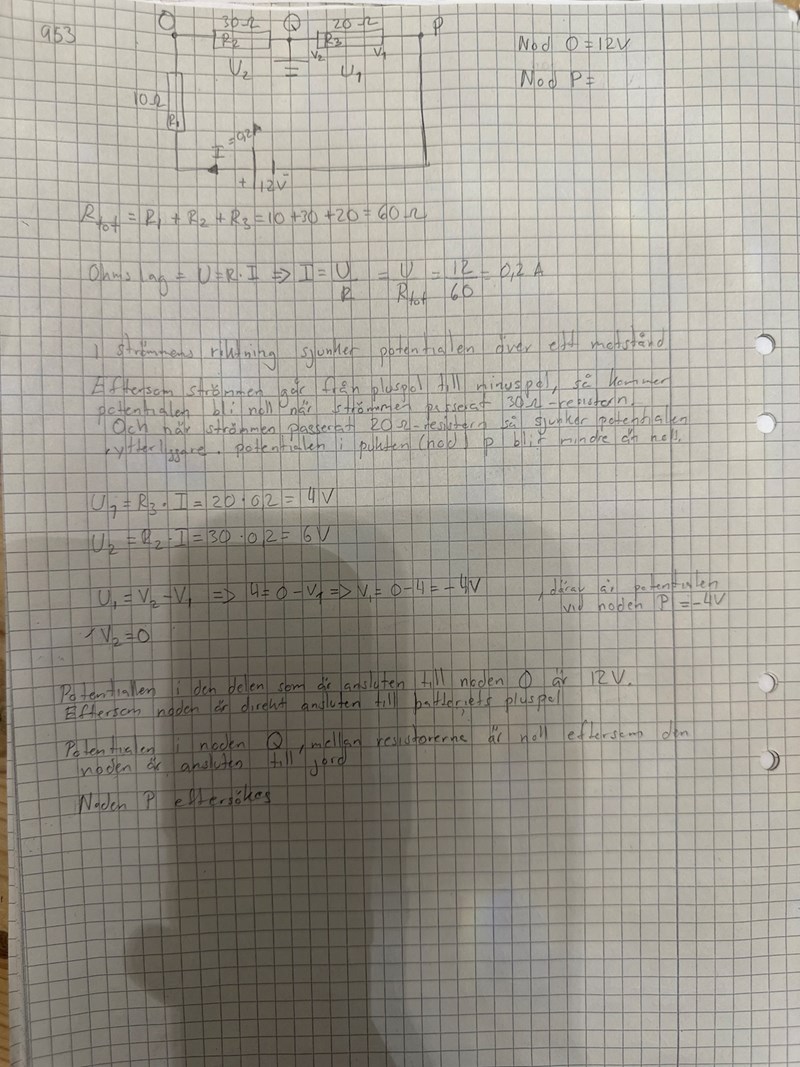 953
O 30Ω Q 20Ω P
R2 R3
V2 V1
U2 U1
10Ω
R1
I =0,2A
+ 12V
Nod O=12V
Nod P=
Rtot = R1 + R2 + R3 = 10+30+20 = 60Ω
Ohms lag = U=R·I ⇒ I = U/R = U/Rtot = 12/60 = 0,2 A
I strömmens riktning sjunker potentialen över ett motstånd
Eftersom strömmen går från pluspol till minuspol, så kommer
potentialen bli noll när strömmen passerat 30Ω-resistorn.
Och när strömmen passerat 20Ω-resistorn så sjunker potentialen
ytterliggare. potentialen i punkten (nod) p blir mindre än noll.
U1 = R3 · I = 20 · 0,2 = 4V
U2 = R2 · I = 30 · 0,2 = 6V
U1 = V2 - V1 ⇒ 4 = 0 - V1 ⇒ V1 = 0-4 = -4V , därav är potentialen
vid noden P = -4V
V2 = 0
Potentiallen i den delen som är ansluten till noden O är 12V.
Eftersom noden är direkt ansluten till batteriets pluspol
Potentialen i noden Q, mellan resistorerna är noll eftersom den
noden är ansluten till jord
Noden P eftersökes